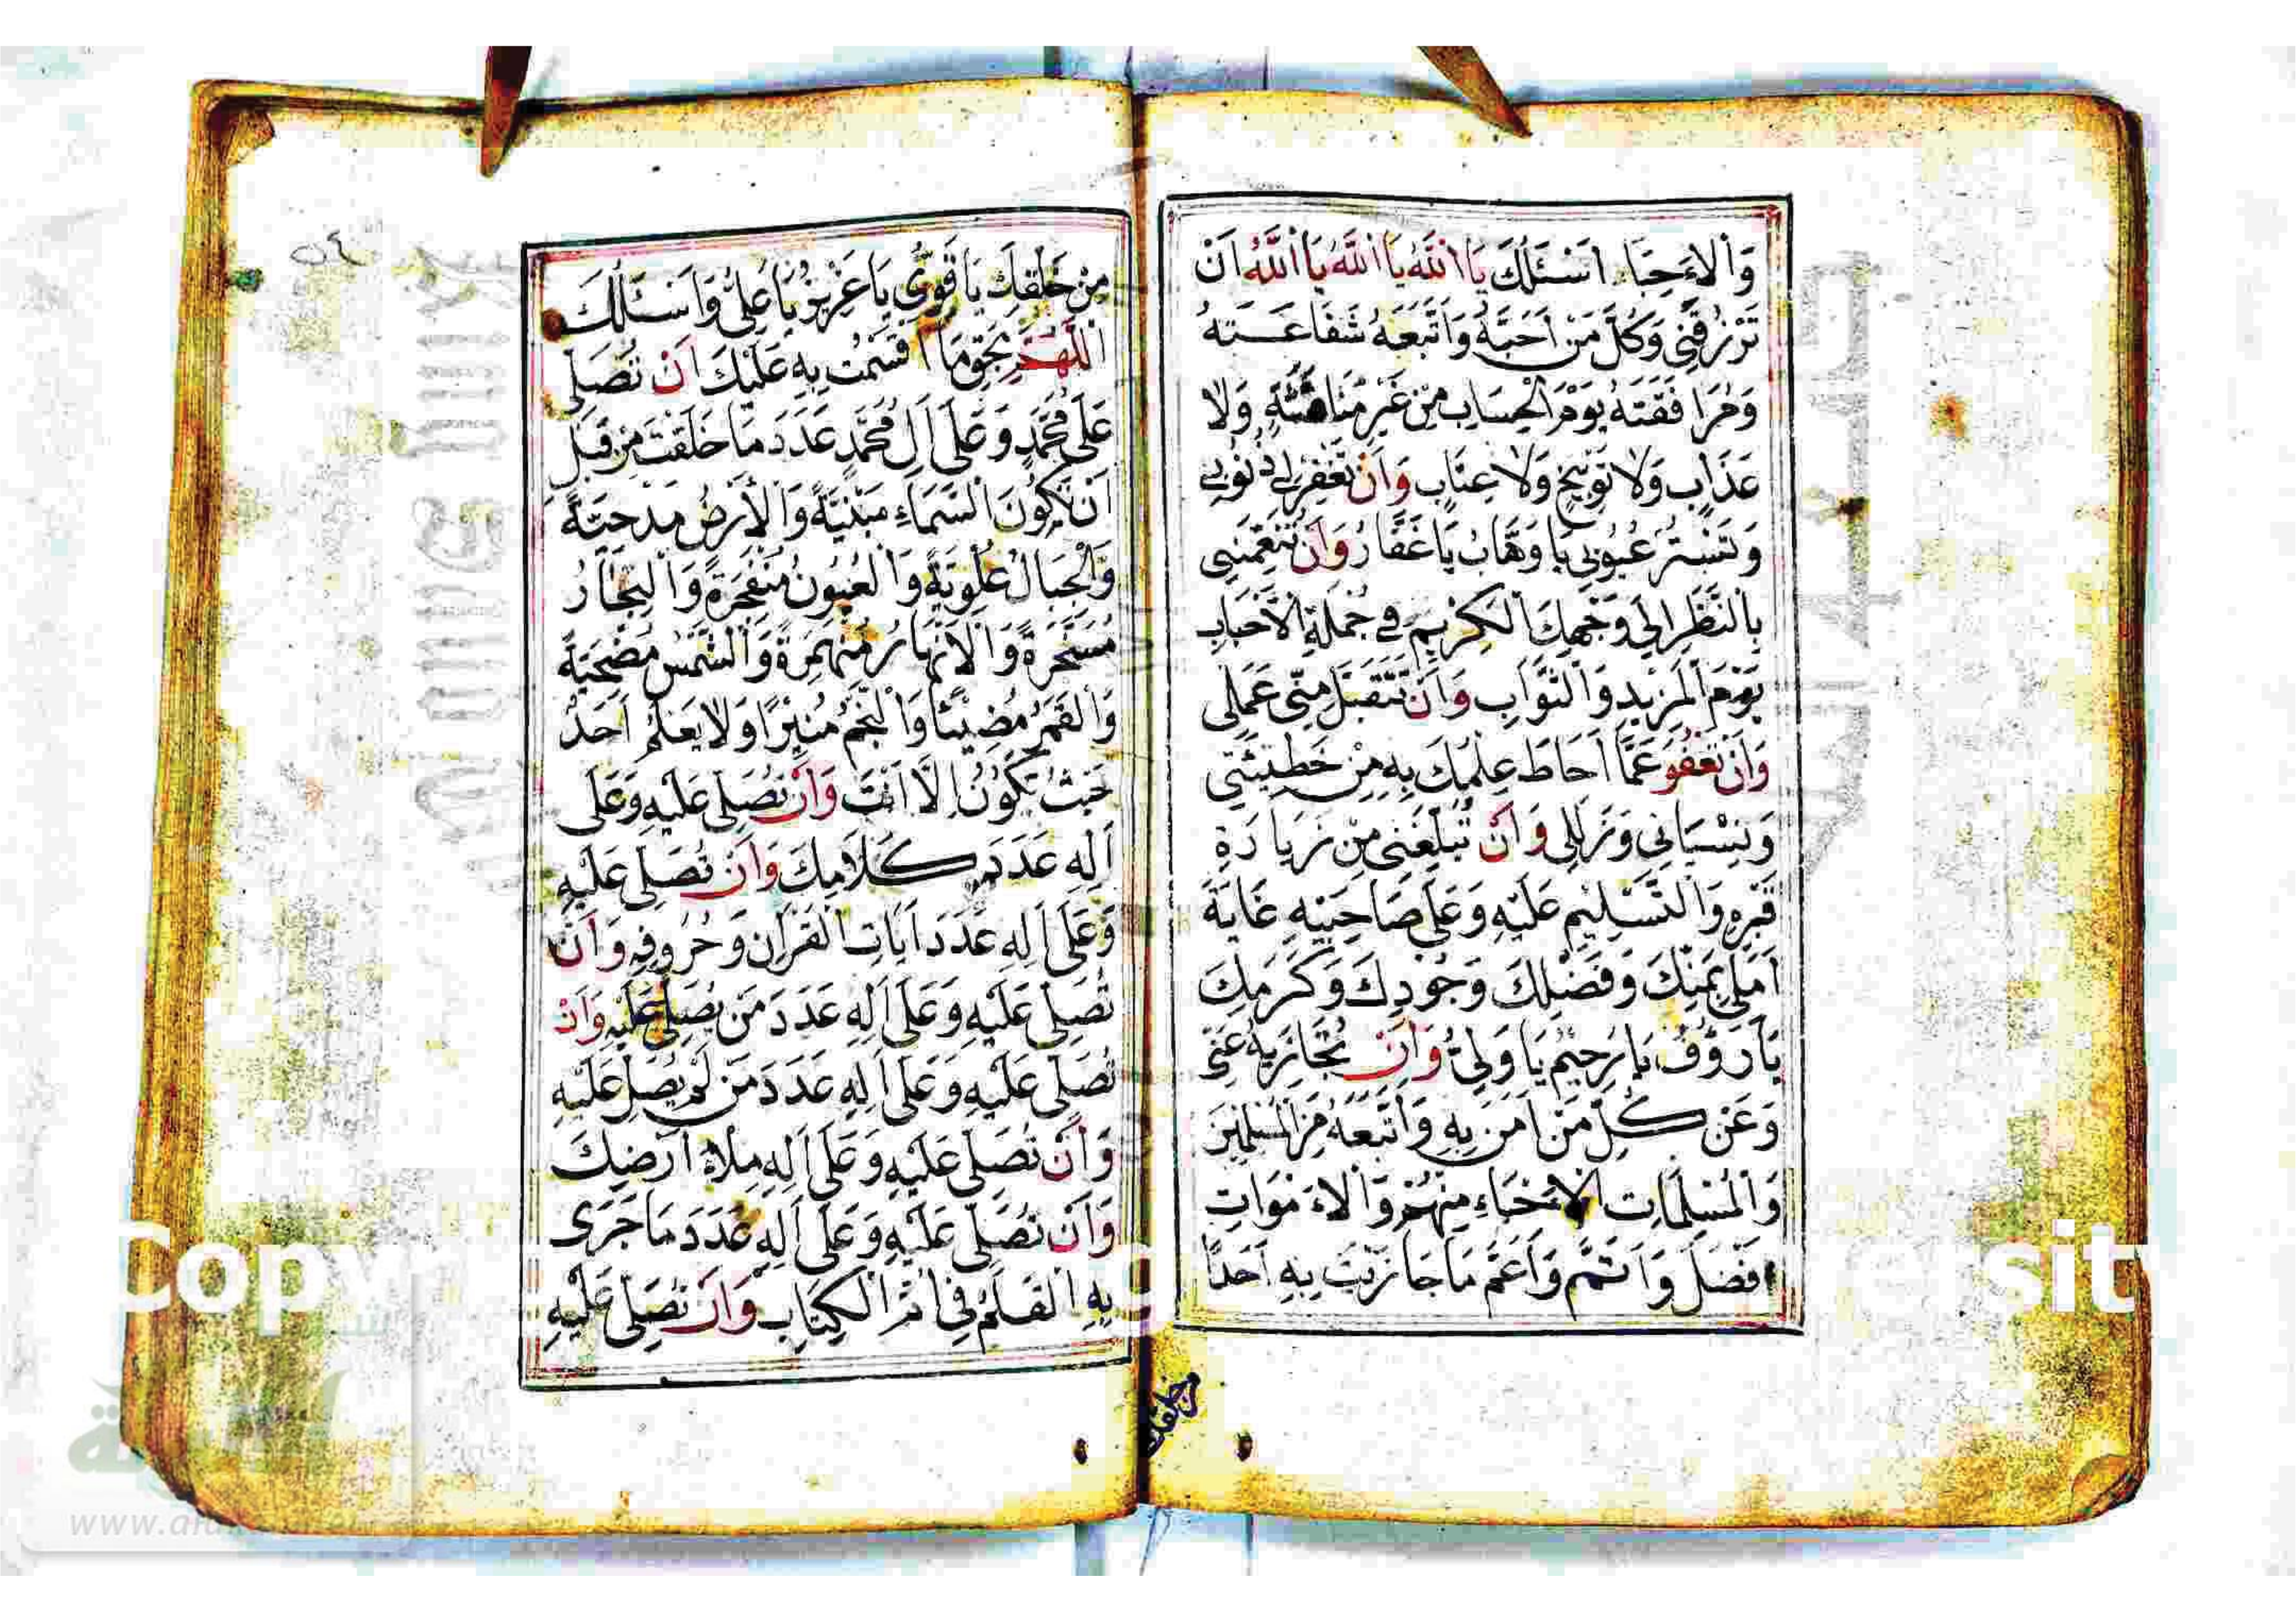 وَالْاَحِبَّاءِ اَسْئَلُكَ يَا اَللّٰهُ يَا اَللّٰهُ يَا اَللّٰهُ اَنْ
تَرْزُقَنِي وَكُلَّ مَنْ اَحَبَّهُ وَاتَّبَعَهُ شَفَاعَتَهُ
وَمُرَافَقَتَهُ يَوْمَ الْحِسَابِ مِنْ غَيْرِ مُنَاقَشَةٍ وَلَا
عَذَابٍ وَلَا تَوْبِيخٍ وَلَا عِتَابٍ وَاَنْ تَغْفِرَ لِي ذُنُوبِي
وَتَسْتُرَ عُيُوبِي يَا وَهَّابُ يَا غَفَّارُ وَاَنْ تُنَعِّمَنِي
بِالنَّظَرِ اِلَى وَجْهِكَ الْكَرِيمِ فِي جُمْلَةِ الْاَحْبَابِ
يَوْمَ الْمَزِيدِ وَالثَّوَابِ وَاَنْ تَتَقَبَّلَ مِنِّي عَمَلِي
وَاَنْ تَعْفُوَ عَمَّا اَحَاطَ عِلْمُكَ بِهِ مِنْ خَطِيئَتِي
وَنِسْيَانِي وَزَلَلِي وَاَنْ تُبَلِّغَنِي مِنْ زِيَارَةِ
قَبْرِهِ وَالتَّسْلِيمِ عَلَيْهِ وَعَلَى صَاحِبَيْهِ غَايَةَ
اَمَلِي بِمَنِّكَ وَفَضْلِكَ وَجُودِكَ وَكَرَمِكَ
يَا رَؤُفُ يَا رَحِيمُ يَا وَلِيُّ وَاَنْ تُجَازِيَهُ عَنِّي
وَعَنْ كُلِّ مَنْ اٰمَنَ بِهِ وَاتَّبَعَهُ مِنَ الْمُسْلِمِينَ
وَالْمُسْلِمَاتِ الْاَحْيَاءِ مِنْهُمْ وَالْاَمْوَاتِ
اَفْضَلَ وَاَتَمَّ وَاَعَمَّ مَا جَازَيْتَ بِهِ اَحَدًا
من خلقك
٥٤
مِنْ خَلْقِكَ يَا قَوِيُّ يَا عَزِيزُ يَا عَلِيُّ وَاَسْئَلُكَ
اللّٰهُمَّ بِحَقِّ مَا اَقْسَمْتُ بِهِ عَلَيْكَ اَنْ تُصَلِّيَ
عَلَى مُحَمَّدٍ وَعَلَى اٰلِ مُحَمَّدٍ عَدَدَ مَا خَلَقْتَ مِنْ قَبْلِ
اَنْ تَكُونَ السَّمَاءُ مَبْنِيَّةً وَالْاَرْضُ مَدْحِيَّةً
وَالْجِبَالُ عُلْوِيَّةً وَالْعُيُونُ مُنْفَجِرَةً وَالْبِحَارُ
مُسَخَّرَةً وَالْاَنْهَارُ مُنْهَمِرَةً وَالشَّمْسُ مُضْحِيَةً
وَالْقَمَرُ مُضِيئًا وَالنَّجْمُ مُنِيرًا وَلَا يَعْلَمُ اَحَدٌ
حَيْثُ تَكُونُ اِلَّا اَنْتَ وَاَنْ تُصَلِّيَ عَلَيْهِ وَعَلَى
اٰلِهِ عَدَدَ كَلَامِكَ وَاَنْ تُصَلِّيَ عَلَيْهِ
وَعَلَى اٰلِهِ عَدَدَ اٰيَاتِ الْقُرْاٰنِ وَحُرُوفِهِ وَاَنْ
تُصَلِّيَ عَلَيْهِ وَعَلَى اٰلِهِ عَدَدَ مَنْ يُصَلِّي عَلَيْهِ وَاَنْ
تُصَلِّيَ عَلَيْهِ وَعَلَى اٰلِهِ عَدَدَ مَنْ لَمْ يُصَلِّ عَلَيْهِ
وَاَنْ تُصَلِّيَ عَلَيْهِ وَعَلَى اٰلِهِ مِلْاَ اَرْضِكَ
وَاَنْ تُصَلِّيَ عَلَيْهِ وَعَلَى اٰلِهِ عَدَدَ مَا جَرَى
بِهِ الْقَلَمُ فِي اُمِّ الْكِتَابِ وَاَنْ تُصَلِّيَ عَلَيْهِ